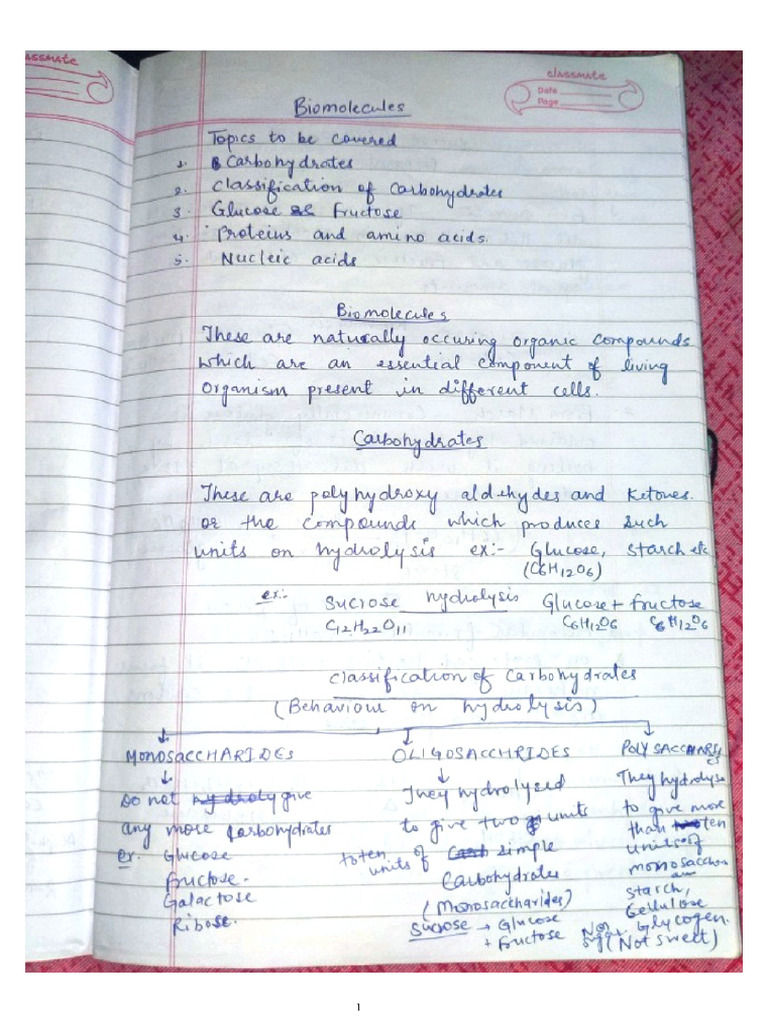 assmate
classmate
Date
Page
Biomolecules
Topics to be covered
1. Carbohydrates
2. Classification of Carbohydrates
3. Glucose Fructose
4. Proteins and amino acids.
5. Nucleic acids
Biomolecules
These are naturally occuring organic compounds
which are an essential component of living
organism present in different cells.
Carbohydrates
These are polyhydroxy aldehydes and Ketones.
or the compounds which produces such
units on hydrolysis ex:- Glucose, starch etc
(C6H12O6)
ex:- Sucrose hydrolysis Glucose + fructose
C12H22O11 C6H12O6 C6H12O6
Classification of Carbohydrates
(Behaviour on hydrolysis)
MONOSACCHARIDES
Do not give
any more Carbohydrates
ex. Glucose
fructose.
Galactose
Ribose.
OLIGOSACCHRIDES
They hydrolysed
to give two units
to ten units of simple
Carbohydrates
(Monosaccharides)
Sucrose → Glucose
+ fructose
They hydrolyse
to give more
than ten
units of
starch,
Cellulose
Glycogen.
(Not sweet)
1